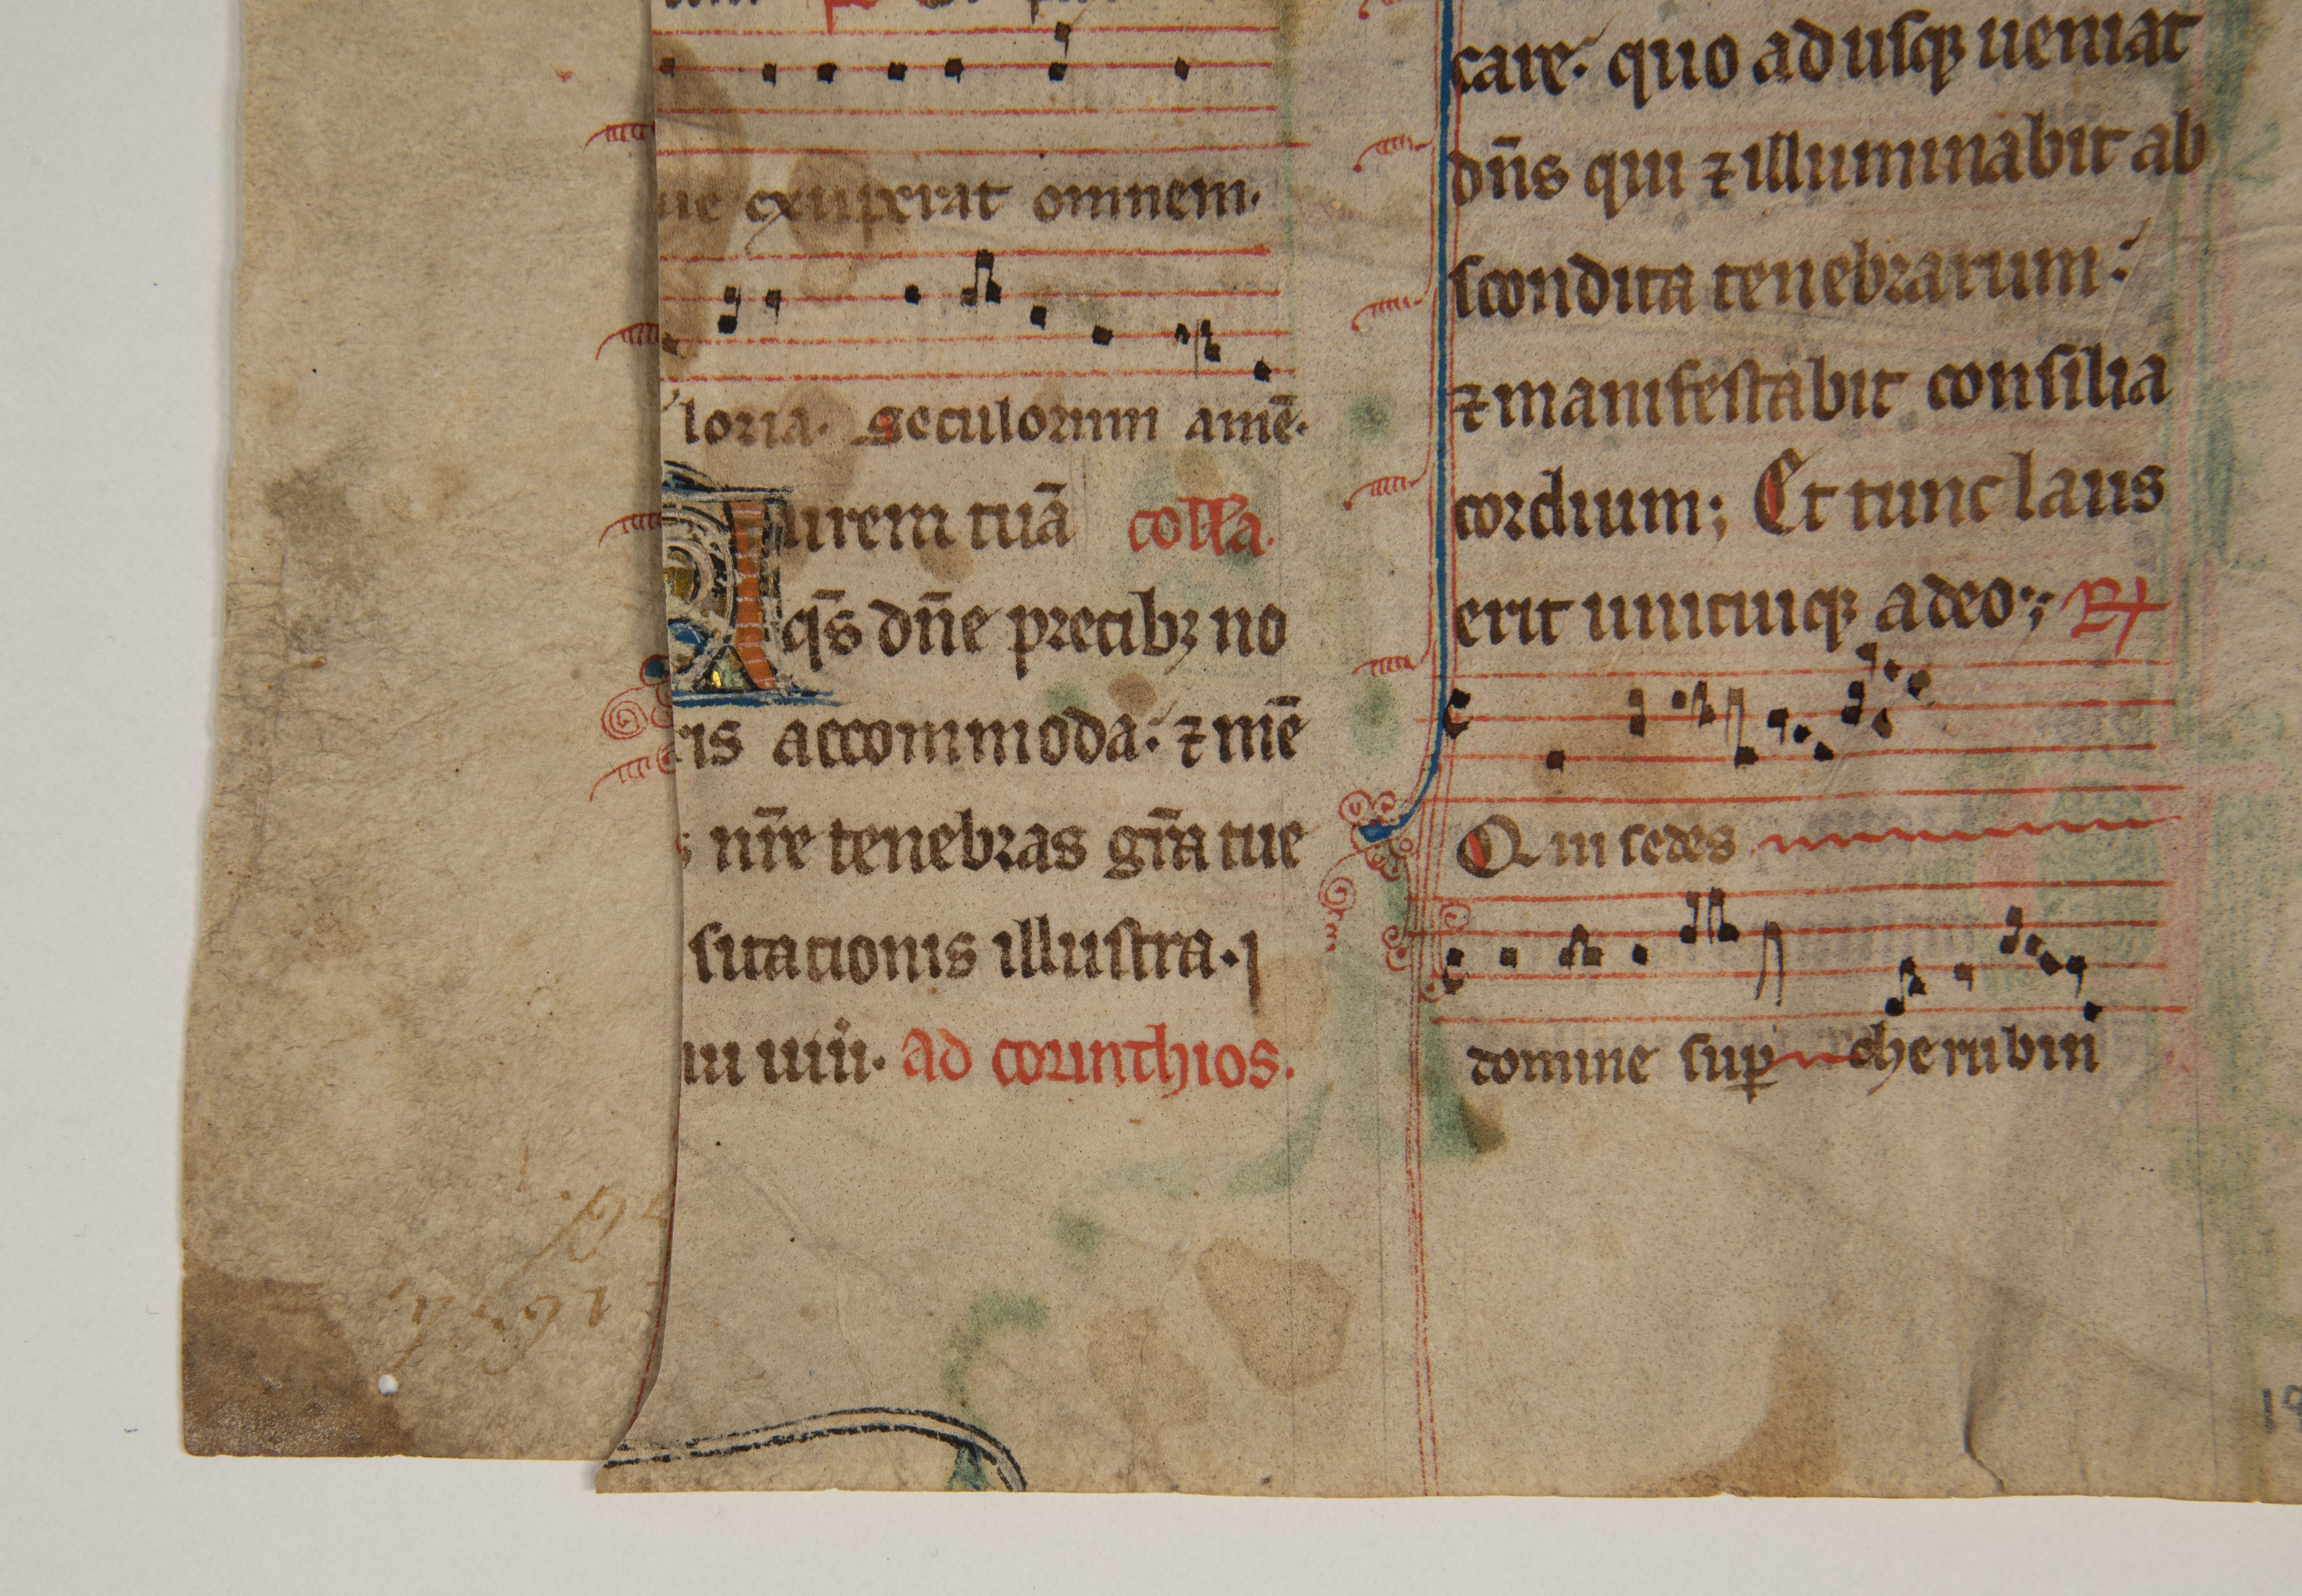 ue exuperat omnem.
loria. seculorum amē.
Aurem tuā coll̄a.
qs̄ dn̄e precibꝫ no
ris accommoda: ⁊ mē
nr̄e tenebras gr̄a tue
sitationis illustra. 
iu uiii. ad corinthios.
care. quo adusqꝫ ueniat
dn̄s qui ⁊ illuminabit ab
scondita tenebrarum:
⁊ manifestabit consilia
cordium; Et tunc laus
erit unicuiqꝫ adeo; R
Qui sedes
domine suꝑ cherubin